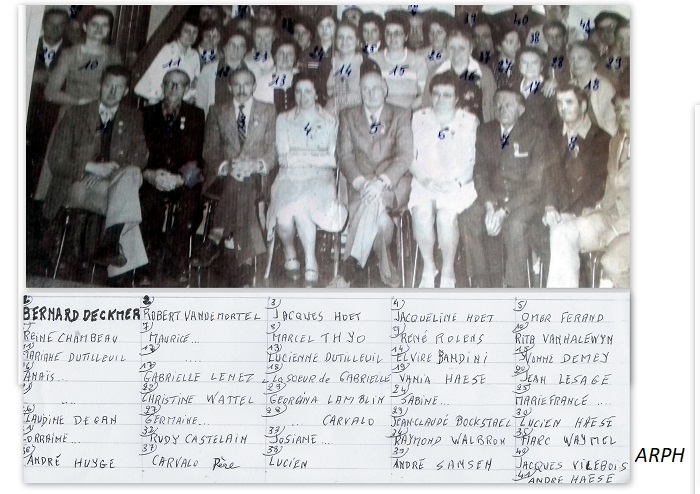 10 11 12 13 14 15 16 17 18
1 2 3 4 5 6 7 8
1) 2) 3) 4) 5)
BERNARD DECKMER ROBERT VANDEMORTEL JACQUES HOET JACQUELINE HOET OMER FERAND
7) 8) 9) 10)
REINE CHAMBEAU MAURICE... MARCEL THYO RENÉ ROLENS RITA VANHALEWYN
12) 13) 14) 15)
MARIANE DUTILLEUIL .... LUCIENNE DUTILLEUIL ELVIRE BANDINI YVONNE DEMEY
17) 18) 19) 20)
ANAÏS... GABRIELLE LENEZ LA SOEUR de GABRIELLE VANIA HAESE JEAN LESAGE
22) 23) 24) 25)
.... CHRISTINE WATTEL GEORGINA LAMBLIN SABINE... MARIE FRANCE ....
27) 28) 29) 30)
CLAUDINE DEGAN GERMAINE... ... CARVALO JEANCLAUDE BOCKSTAEL LUCIEN HAESE
32) 33) 34) 35)
LORRAINE... RUDY CASTELAIN JOSIANE... RAYMOND WALBRON MARC WAYMEL
37) 38) 39) 40)
ANDRÉ HUYGE CARVALO Père LUCIEN ANDRÉ SAMSEN JACQUES VILEBOIS
41) ANDRE HAESE
ARPH